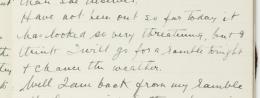 than she
Have not been out so far today it
has looked so very threatning, but I
think I will go for a ramble tonight
& chance the weather.
Well I am back from my ramble